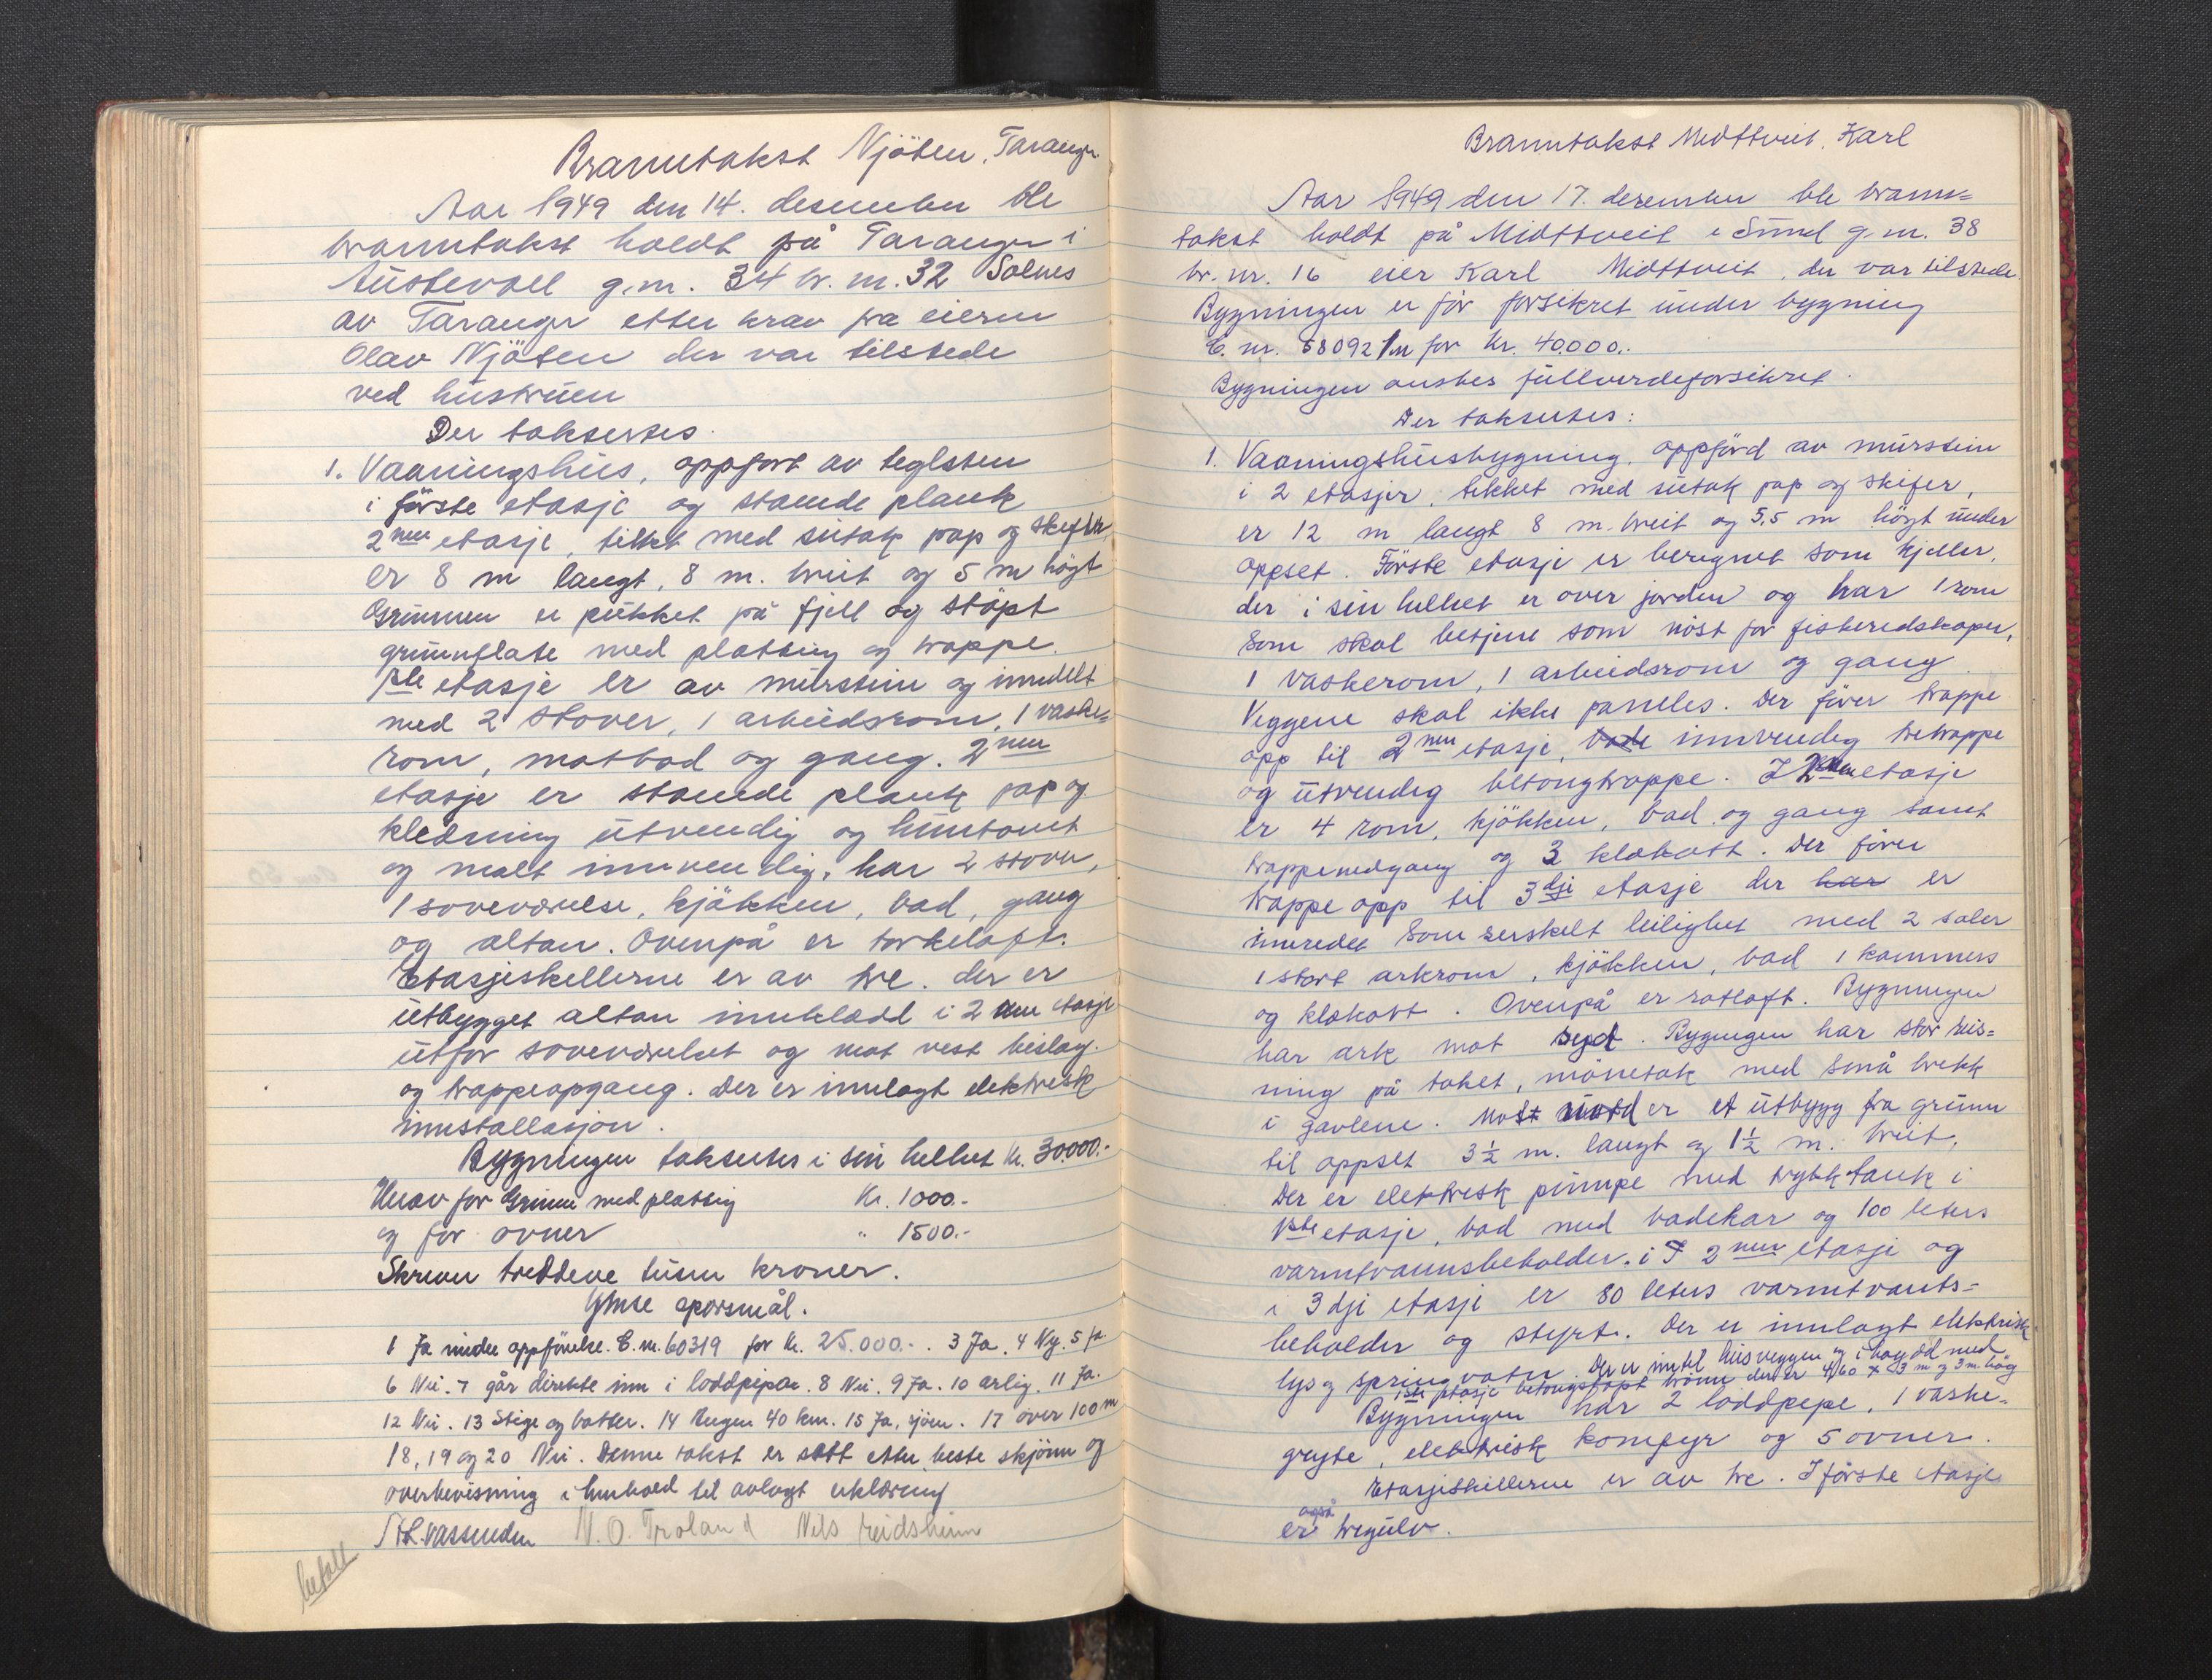 Branntakst Njöten, Taranger
Aar 1949 den 14. desember ble
branntakst holdt på Taranger i
Austevoll g.nr. 34 br. nr. 32 Solnes
av Taranger etter krav fra eieren
Olav Njöten der var tilstede
ved hustruen
Der taksertes.
1. Vaaningshus, oppfort av teglsten
i förste etasje og staende plank
2nen etasje, tekket med sutak pap og skeffer,
er 8 m langt, 8 m. breit og 5 m högt
Grunnen er pukket på fjell og stöpt
grunnflate med platting og trappe.
1ste etasje er av murstein og inndelt
med 2 stover, 1 arbeidsrom, 1 vaske=
rom, matbod og gang. 2nen
etasje er staende plank pap og
kledning utvendig og huntonet
og malt innvendig, har 2 stover,
1 soveværelse, kjökken, bad, gang
og altan. Ovenpå er torkeloft.
Etasjeskellerne er av tre. der er
utbygget altan innkledd i 2 nen etasje
utfor soveværelset og mot vest bislag.
og trappeopgang. Der er innlagt elektresk
innstallasjon.
Bygningen takseres i sin helhet kr. 30.000.-
Herav for Grunn med platting Kr. 1000.-
og for ovner " 1500.-
Skriver treddeve tusen kroner.
Ymse sporsmål.
1 Ja under oppförelse. E. nr. 60319 for kr. 25.000.- . 3 Ja. 4 Ny. 5 Ja.
6 Nei. 7 går direkte inn i loddpipar. 8 Nei. 9 Ja. 10 arlig. 11 Ja.
12 Nei. 13 Stige og bötter. 14 Bergen 40 km. 15 Ja, sjöen. 17 over 100 m
18, 19 og 20 Nei. Denne takst er satt etter beste skjönn og
overbevisning i henhold til avlagt erklæring
A L. Vassenden N. O. Troland Nils Leidsheim
betalt
Branntakst Midttveit, Karl
Aar 1949 den 17. desember ble brann=
takst holdt på Midttveit i Sund g. nr. 38
br. nr. 16 eier Karl Midttveit, der var tilstede.
Bygningen er för forsikret under bygning
E. nr. 58092 1/n for kr. 40.000.-
Bygningen onskes fullverdeforsikret.
Der takseres:
1. Vaaningshusbygning, oppförd av murstein
i 2 etasjer, tekket med sutak pap og skifer,
er 12 m langt 8 m. breit og 5,5 m högt under
oppset. Förste etasje er beregnet som kjeller,
der i sin helhet er over jorden og har 1 rom
som skal betjene som nöst for fiskeredskaper,
1 vaskerom, 1 arbeidsrom og gang.
Veggene skal ikke paneles. Der förer trappe
opp til 2nen etasje, både innvendig tretrappe
og utvendig betongtrappe. I 2nen etasje
er 4 rom, kjökken, bad og gang samt
trappenedgang og 3 klekott. Der förer
trappe opp til 3dje etasje der har er
innredet som serskelt leilighet med 2 saler
1 stort arkrom, kjökken, bad 1 kammers
og klekott. Ovenpå er rotloft. Bygningen
har ark mot syd. Bygningen har stor reis=
ning på taket, mönetak med små brekk
i gavlene. Mot nord er et utbygg fra grunn
til oppset 3 1/2 m. langt og 1 1/2 m. breit.
Der er elektresk pumpe med trykktank i
1ste etasje, bad med badekar og 100 leters
varmtvannsbeholder. i 2nen etasje og
i 3dje etasje er 80 leters varmtvants=
beholder og styrt. Der er innlagt elektrisk
lys og springvatn. Der er inntil husveggen og i höyd med
1ste etasje betongstöpt brönn der er 4,60 x 3 m og 3 m. hög
Bygningen har 2 loddpepe, 1 vaske=
gryte, elektrisk komfyr og 5 ovner.
Etasjeskillerne er av tre. I förste etasje
er også tregulv.